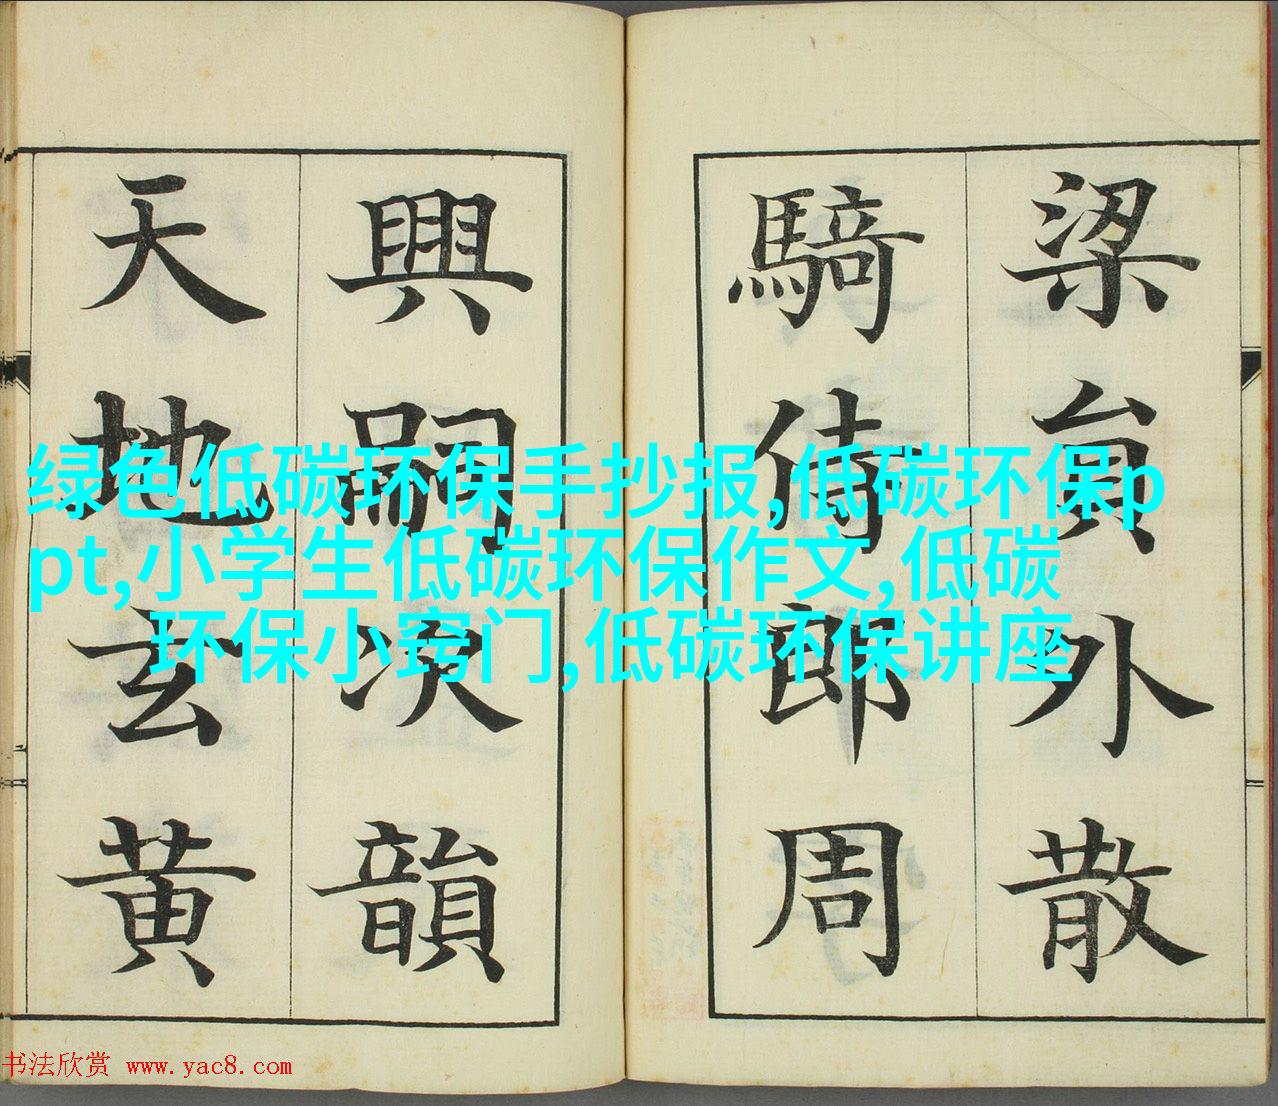 梁貟外散
騎侍郎周
興嗣次韻
天地玄黄
绿色低碳环保手抄报,低碳环保p
pt,小学生低碳环保作文,低碳
环保小窍门,低碳环保讲座
书法欣赏 www.yac8.com